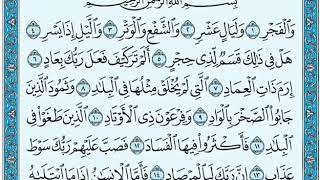 بِسْمِ اللَّهِ الرَّحْمَٰنِ الرَّحِيمِ
وَالْفَجْرِ ۝١ وَلَيَالٍ عَشْرٍ ۝٢ وَالشَّفْعِ وَالْوَتْرِ ۝٣ وَاللَّيْلِ إِذَا يَسْرِ ۝٤
هَلْ فِي ذَٰلِكَ قَسَمٌ لِّذِي حِجْرٍ ۝٥ أَلَمْ تَرَ كَيْفَ فَعَلَ رَبُّكَ بِعَادٍ ۝٦
إِرَمَ ذَاتِ الْعِمَادِ ۝٧ الَّتِي لَمْ يُخْلَقْ مِثْلُهَا فِي الْبِلَادِ ۝٨ وَثَمُودَ الَّذِينَ
جَابُوا الصَّخْرَ بِالْوَادِ ۝٩ وَفِرْعَوْنَ ذِي الْأَوْتَادِ ۝١٠ الَّذِينَ طَغَوْا فِي
الْبِلَادِ ۝١١ فَأَكْثَرُوا فِيهَا الْفَسَادَ ۝١٢ فَصَبَّ عَلَيْهِمْ رَبُّكَ سَوْطَ
عَذَابٍ ۝١٣ إِنَّ رَبَّكَ لَبِالْمِرْصَادِ ۝١٤ فَأَمَّا الْإِنسَانُ إِذَا مَا ابْتَلَاهُ